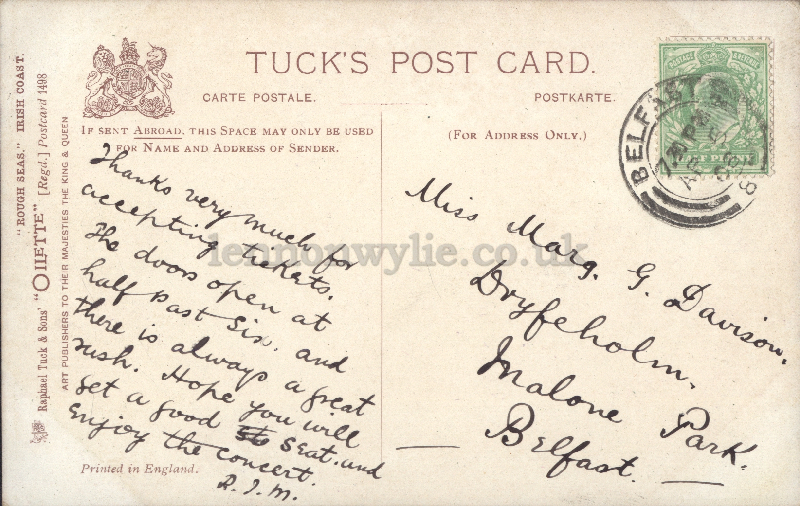 TUCK'S POST CARD.
CARTE POSTALE.
POSTKARTE.
IF SENT ABROAD, THIS SPACE MAY ONLY BE USED
FOR NAME AND ADDRESS OF SENDER.
(FOR ADDRESS ONLY.)
"ROUGH SEAS." IRISH COAST.
Raphael Tuck & Sons' "OILETTE" [Regd.] Postcard 1498
ART PUBLISHERS TO THEIR MAJESTIES THE KING & QUEEN
BELFAST
Thanks very much for
accepting tickets.
The doors open at
half past six, and
there is always a great
rush. Hope you will
get a good seat and
enjoy the concert.
R.J.M.
Miss Marg. G. Davison.
Dryfeholm.
Malone Park.
Belfast.
Printed in England.
lennonwylie.co.uk